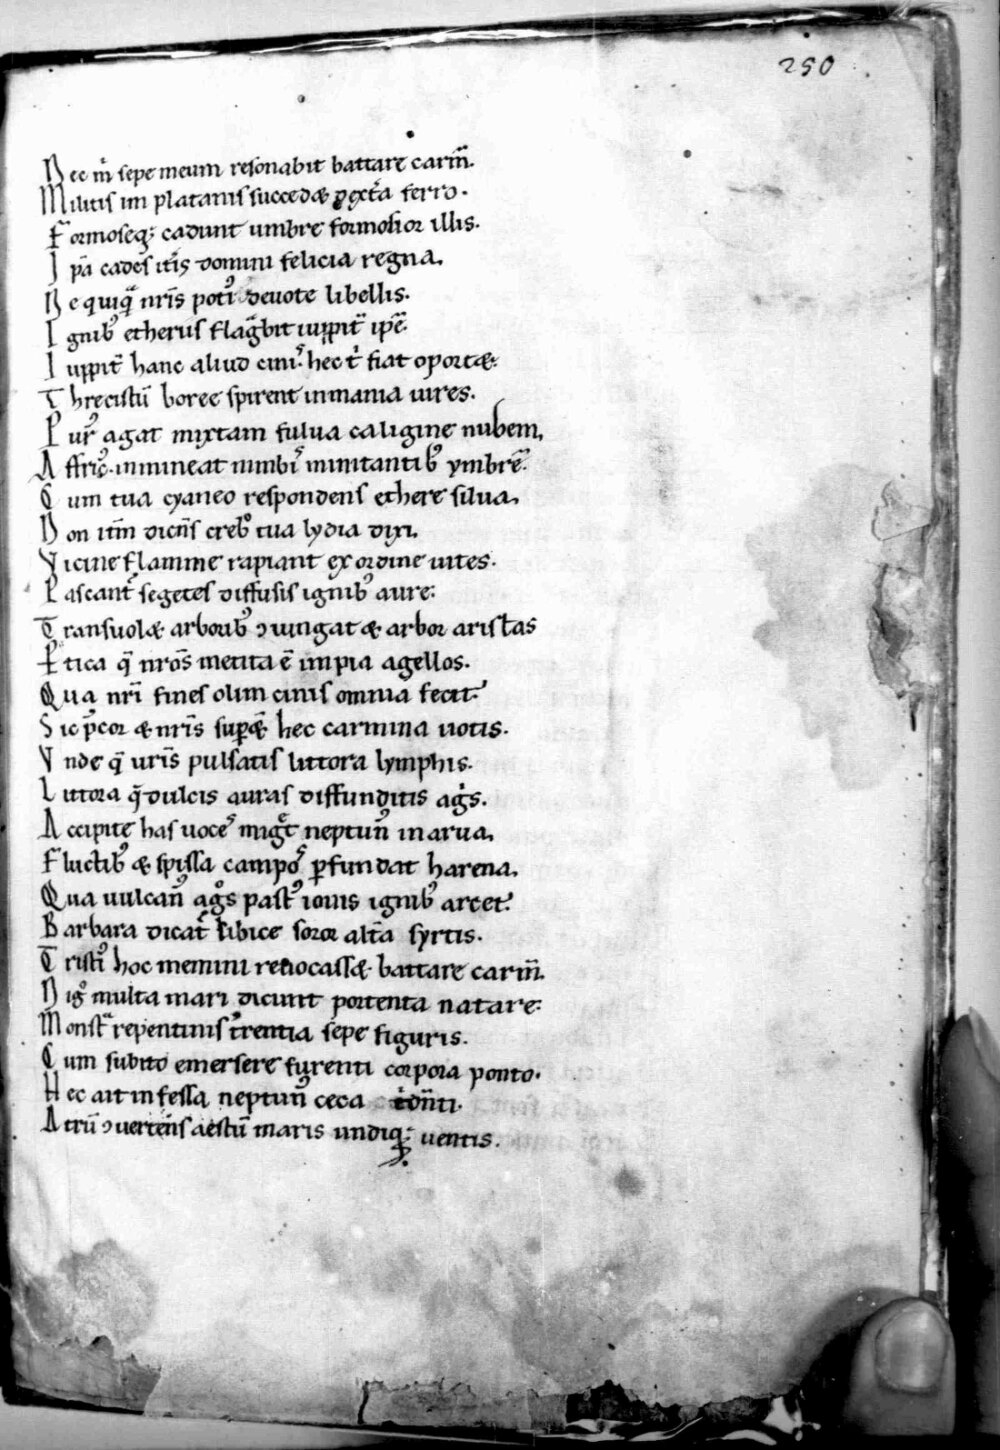 250
Nec m̄ sepe meum resonabit battare carm̄.
Militis im platanis succedæ dext̄a ferro.
Formoseq; cadunt umbre formosior illis.
I pā cadēs it̄is domini felicia regna.
Ne quiq̄ nr̄is potiꝰ deuote libellis.
Ignibꝰ etheriis flag̃bit iuppit̄ ip̄e.
Iuppit̄ hanc aliud cini.ˢ hec t' fiat oportæ.
Threcistū boree spirent inmania uires.
Purꝰ agat mixtam fulua caligine nubem.
Affricꝰ inmineat nimbiˢ minitantibꝰ ymbrē.
Cum tua cyaneo respondens ethere silua.
Non it̄m dicn̄s crebꝰ tua lydia dixi.
Vicine flamme rapiant ex ordine uites.
Pascant̄ segetes diffusis ignibꝰ aure.
Transuolæ arboribꝰ ↄiungat æ arbor aristas
Ptica q̄ nrōs metita ē impia agellos.
Qua nr̄i fines olim cinis omnia fecit.
Sic p̄cor æ nr̄is supæ̃ hec carmina uotis.
Vnde q̄ ur̄is pulsatis littora lymphis.
Littora q̄ dulcis auras diffunditis ag̓s.
Accipite has uoceˢ mig̃t neptunꝰ in arua.
Fluctibꝰ æ spissa campoˢ ꝑfundat harena.
Qua uulcanꝰ ag̊s pastꝰ iouis ignibꝰ arcet.
Barbara dicat̄ libice soror alt̄a syrtis.
Tristiꝰ hoc memini reuocassæ battare carm̄.
Nig̊ multa mari dicunt portenta natare.
Monstᵃ repentinis t̄rentia sepe figuris.
Cum subito emersere furenti corpora ponto.
Hec ait infessa neptunꝰ ceca t̓don̄ti.
Atrū ↄuertēs aestū maris undiq; uentis.